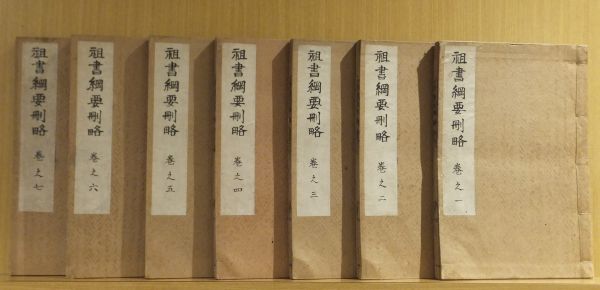 祖書綱要刪略 巻之一
祖書綱要刪略 巻之二
祖書綱要刪略 巻之三
祖書綱要刪略 巻之四
祖書綱要刪略 巻之五
祖書綱要刪略 巻之六
祖書綱要刪略 巻之七